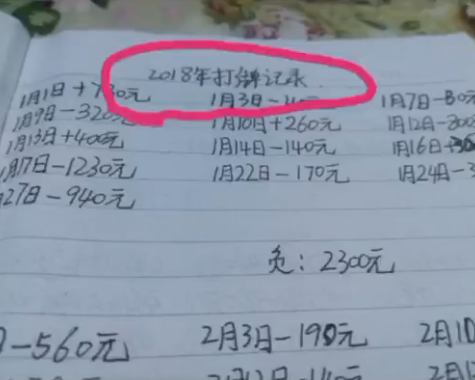 2018年打牌记录
1月1日+730元 1月3日 1月7日-80元
1月9日-320元 1月10日+260元 1月12日-300
1月13日+400元 1月14日-140元 1月16日
1月17日-1230元 1月22日-170元 1月24日-3
27日-940元
负：2300元
日-560元 2月3日-190元 2月10
2月12日-140元 2月1